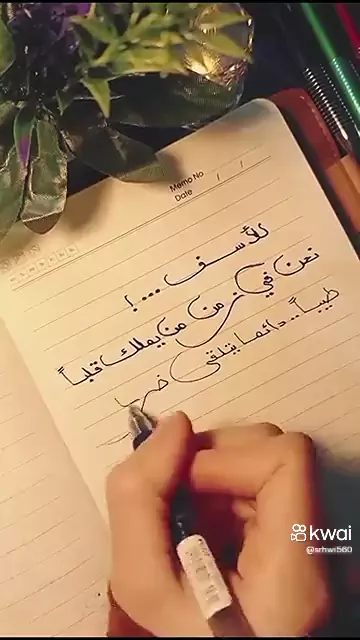 Memo No
Date / /
للأسف ...!
نحن في زمن من يملك قلباً
طيباً.. دائما يتلقى ضربا
kwai
@srhwi560